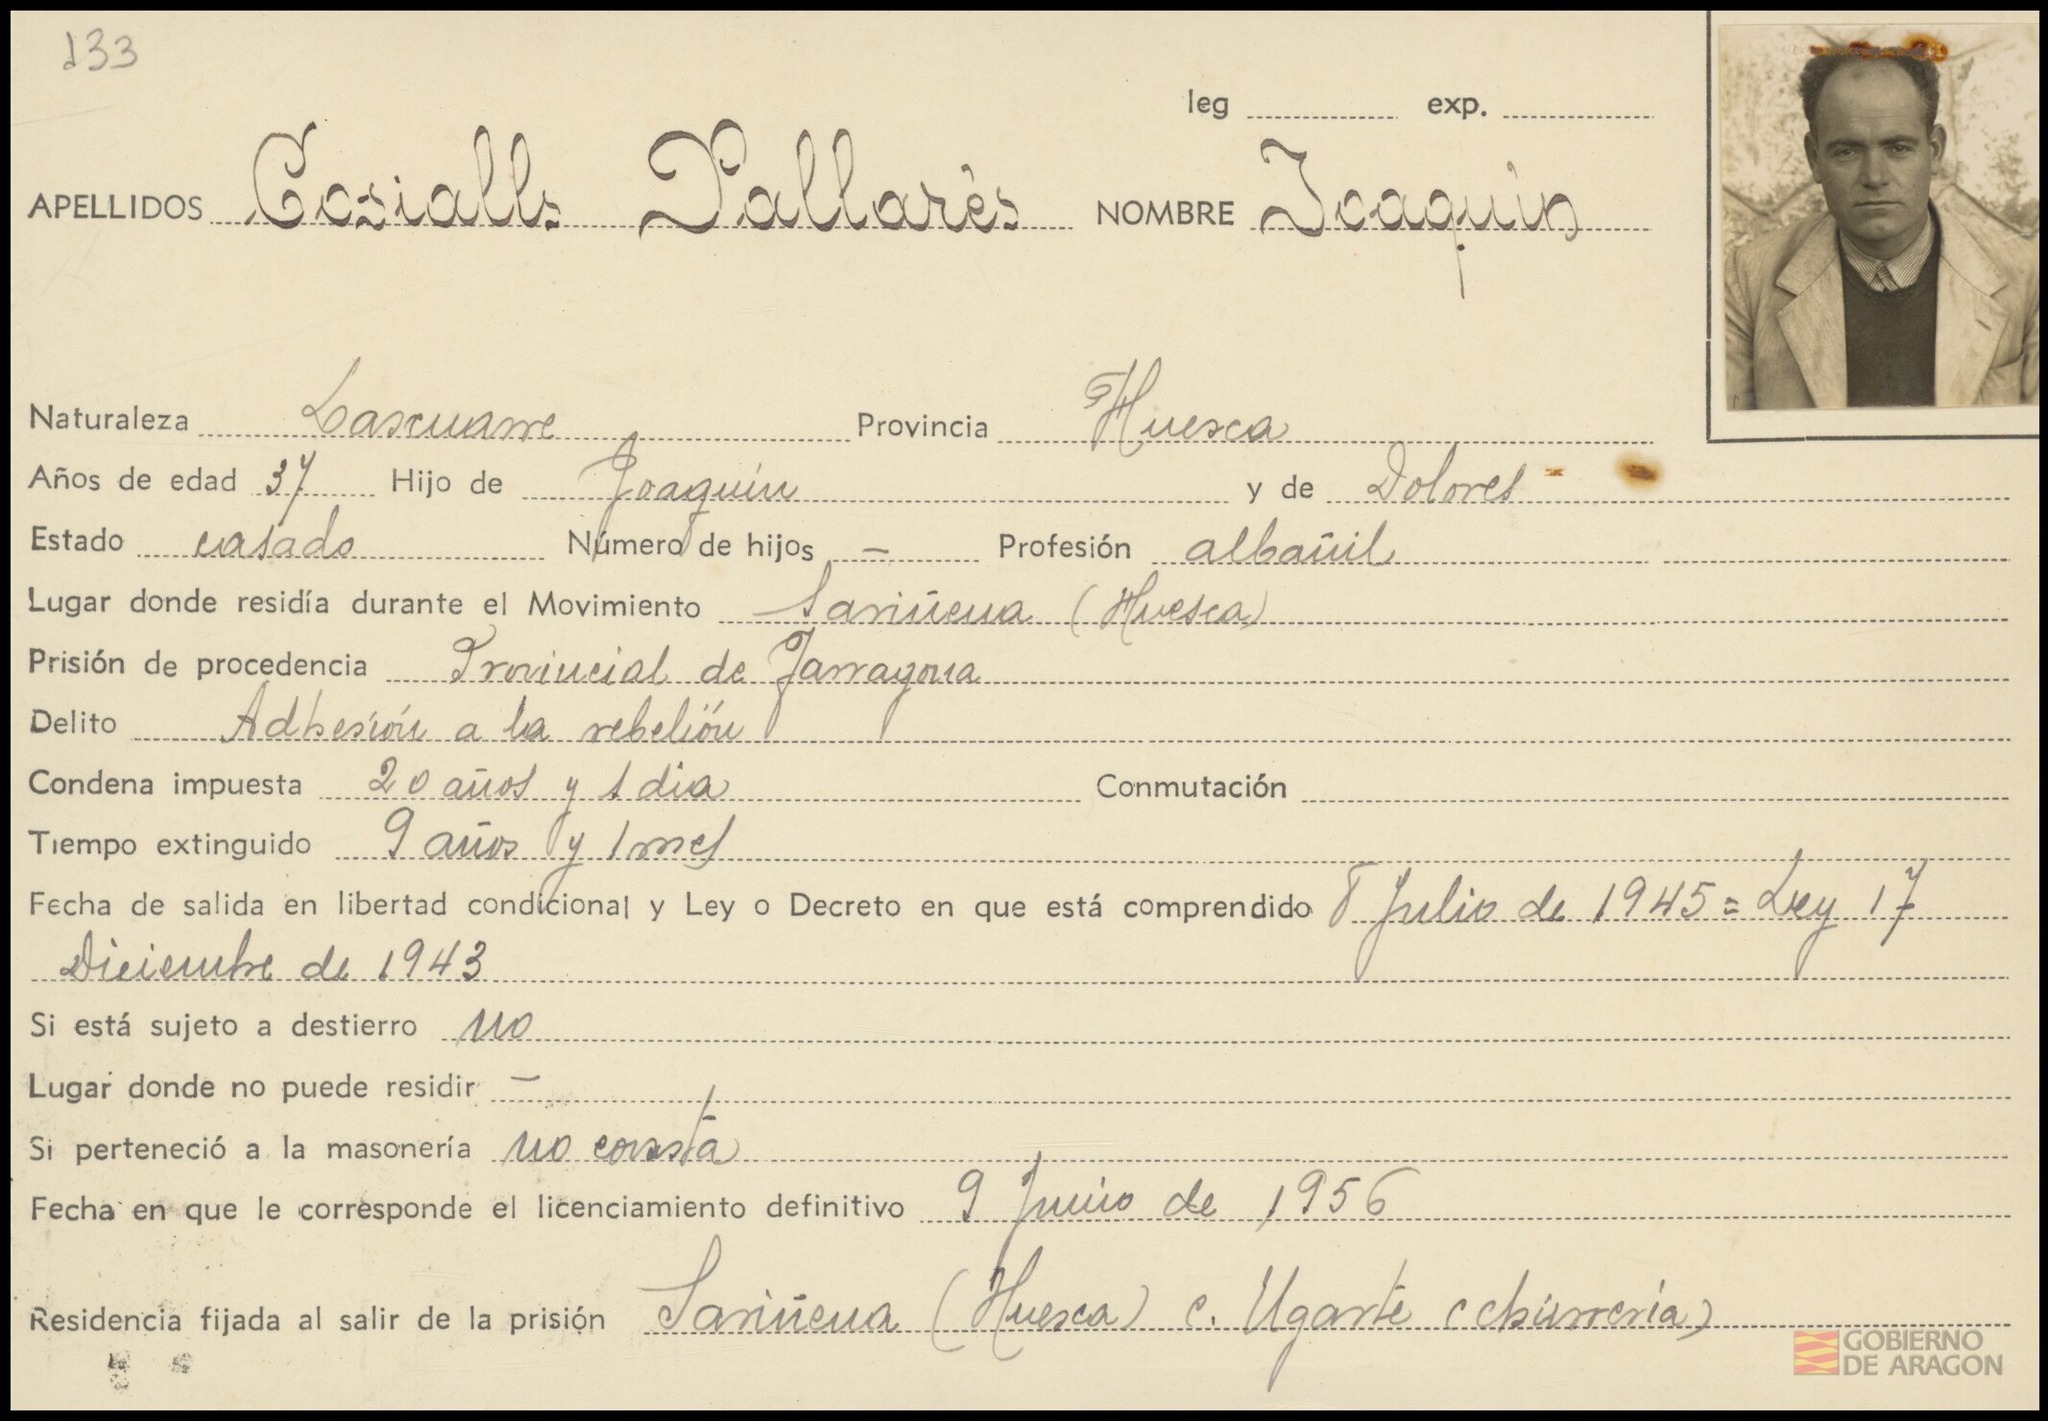 133
leg exp.
APELLIDOS Cosialls Pallarés NOMBRE Joaquín
Naturaleza Lascuarre Provincia Huesca
Años de edad 37 Hijo de Joaquín y de Dolores
Estado casado Número de hijos – Profesión albañil
Lugar donde residía durante el Movimiento Sariñena (Huesca)
Prisión de procedencia Provincial de Tarragona
Delito Adhesión a la rebelión
Condena impuesta 20 años y 1 dia Conmutación
Tiempo extinguido 9 años y 1 mes
Fecha de salida en libertad condicional y Ley o Decreto en que está comprendido 8 Julio de 1945 = Ley 17
Diciembre de 1943
Si está sujeto a destierro no
Lugar donde no puede residir –
Si perteneció a la masonería no consta
Fecha en que le corresponde el licenciamiento definitivo 9 Junio de 1956
Residencia fijada al salir de la prisión Sariñena (Huesca) c. Ugarte (churreria)
GOBIERNO
DE ARAGON